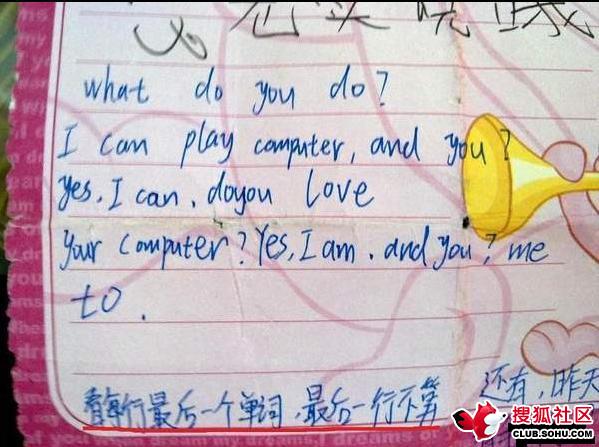 what do you do?
I can play computer, and you?
yes, I can. doyou love
your computer? Yes, I am. and you? me
to.
看每行最后一个单词,最后一行不算 还有,昨天
搜狐社区
CLUB.SOHU.COM